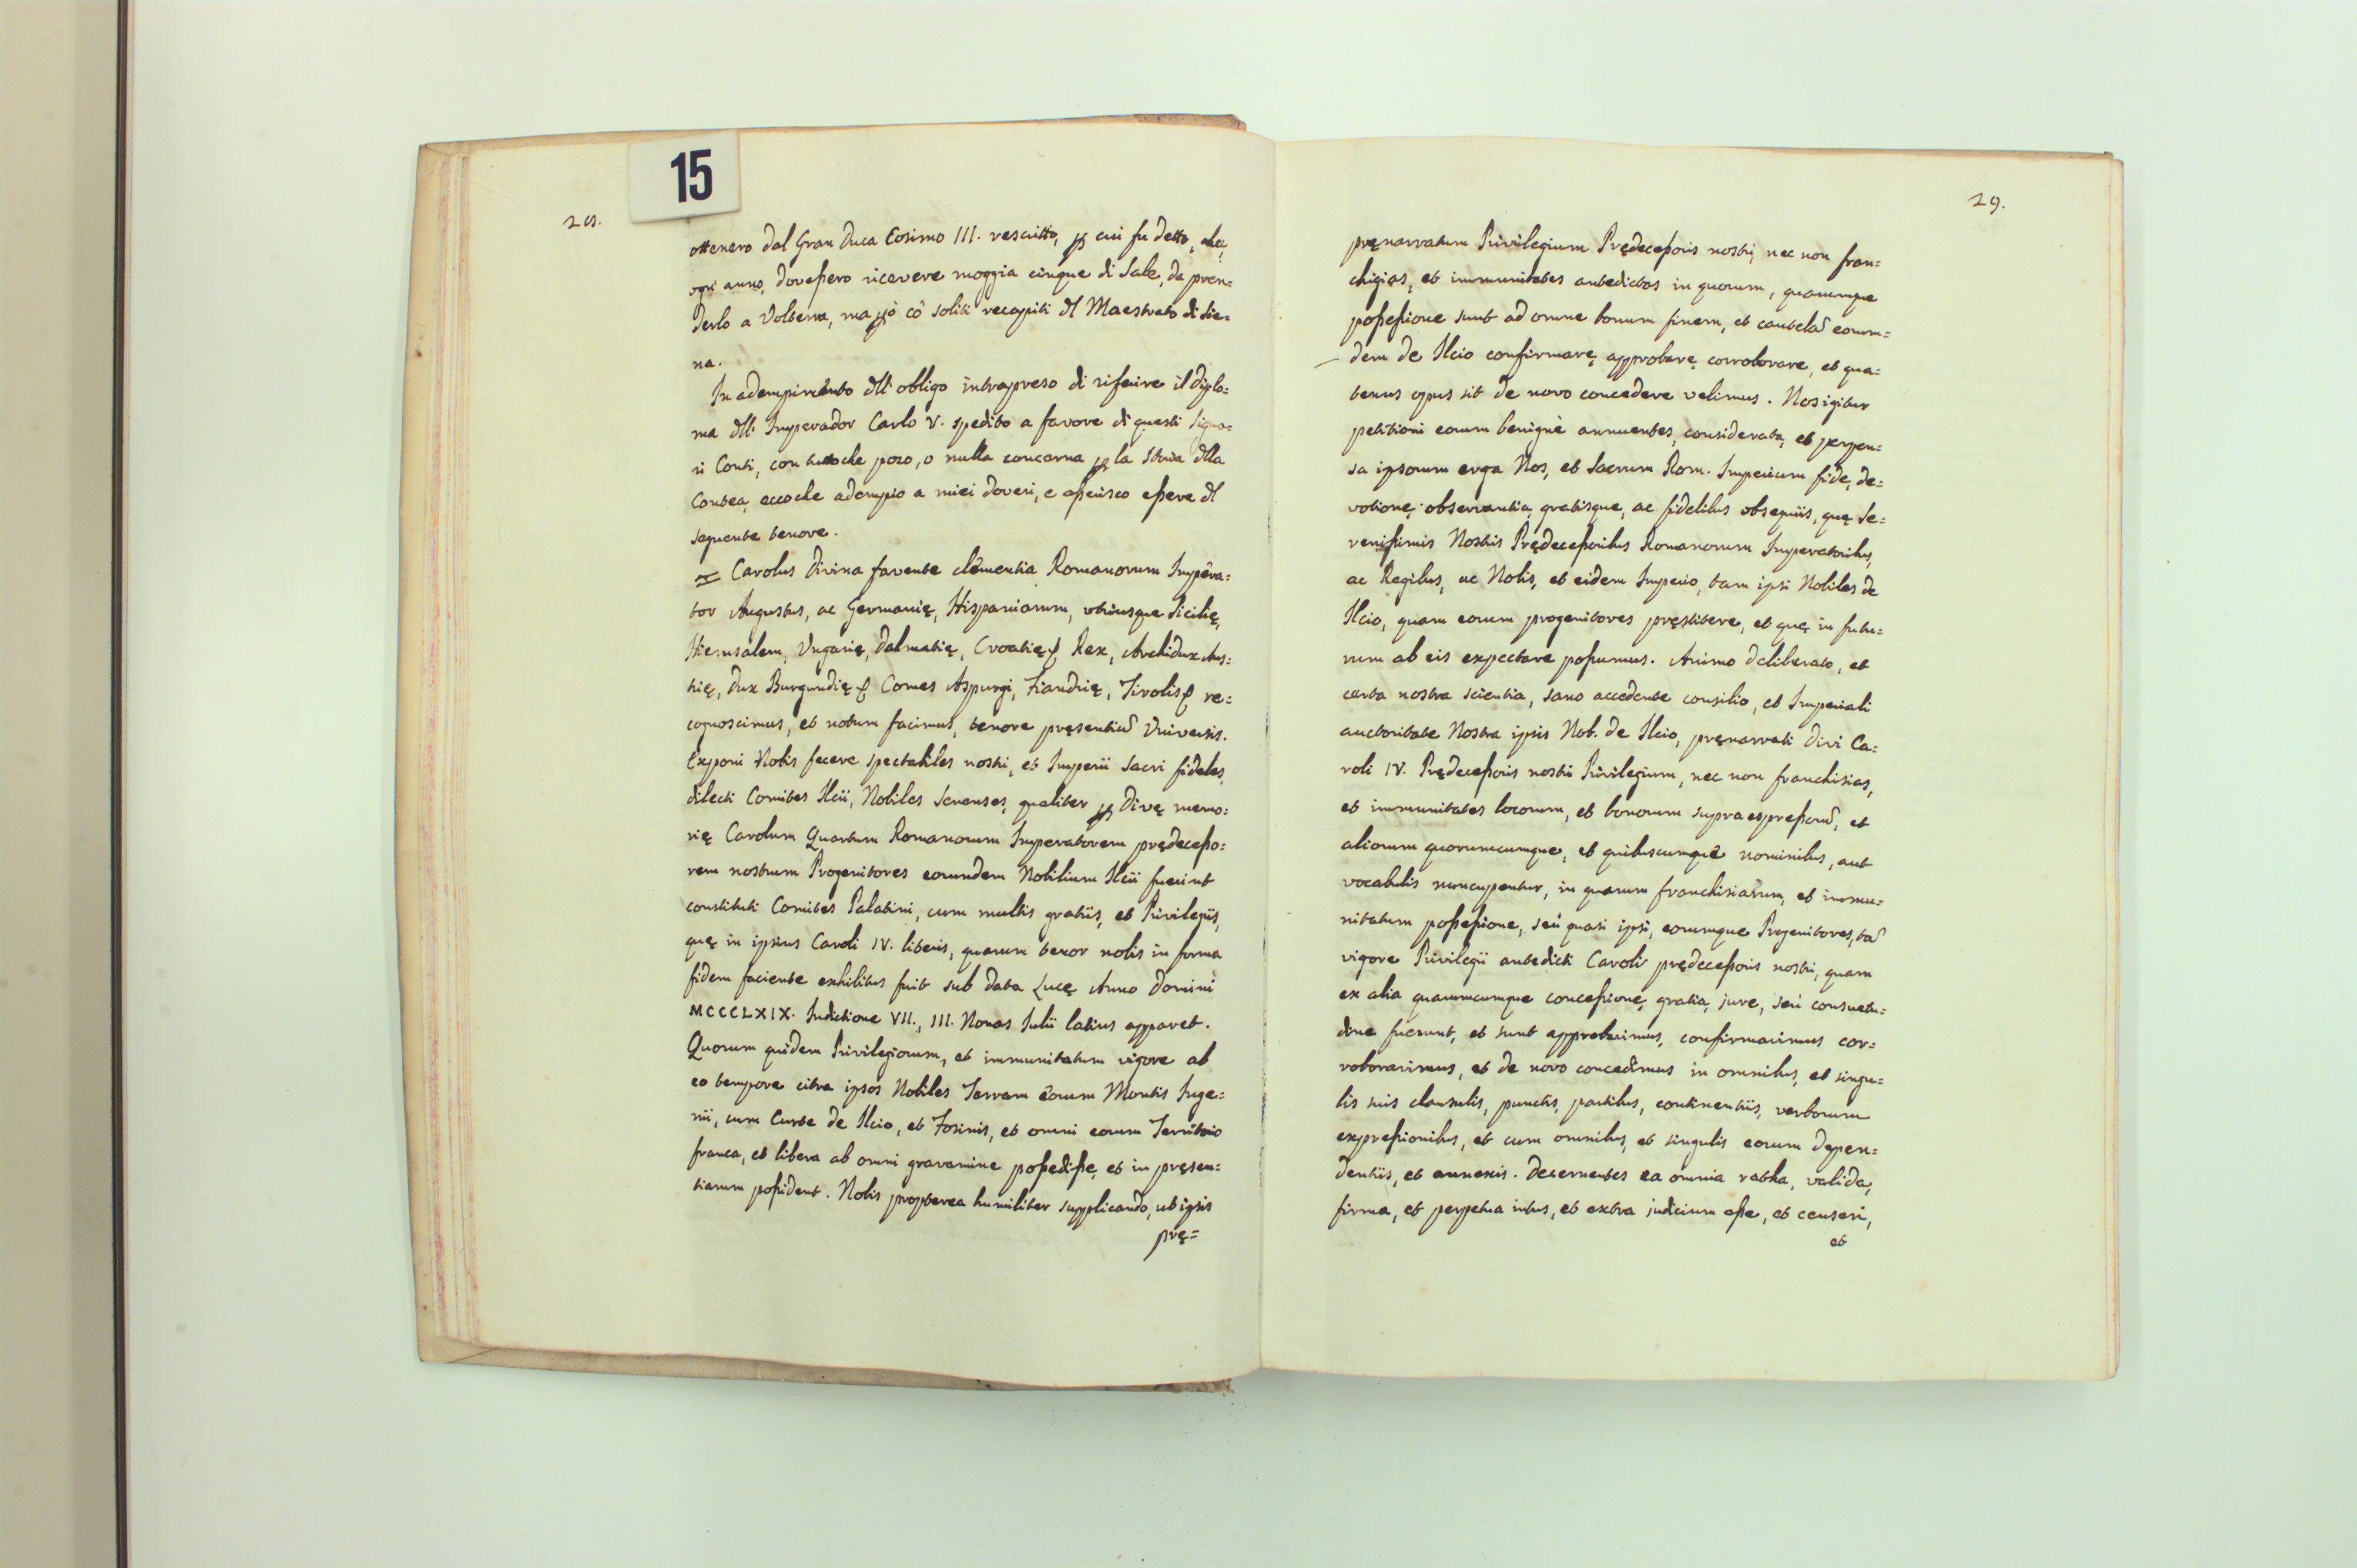 15
28.
ottenero dal Gran Duca Cosimo III. rescritto, ꝑ cui fu detto, che,
ogni anno, dovessero ricevere moggia cinque di Sale, da pren=
derlo a Volterra, ma ꝑò cõ soliti recapiti dl Maestrato di Sie=
na.
In adempimẽto dll' obligo intrapreso di riferire il diplo=
ma dll' Imperador Carlo V. spedito a favore di questi Signo=
ri Conti, con tuttoche poco, o nulla concerna ꝑ la Storia dlla
Contea, eccoche adempio a miei doveri, e asserisco essere dl
seguente tenore.
Carolus divina favente clementia Romanorum Impera=
tor Augustus, ac Germanię, Hispaniarum, utriusque Sicilię,
Hierusalem, Ungarię, Dalmatię, Croatię & Rex, Archidux Aus=
trię, Dux Burgundię & Comes Aspurgi, Fiandrię, Tirolis & re=
cognoscimus, et notum facimus, tenore pręsentiũ Universis.
Exponi Nobis fecere spectabiles nostri, et Imperii Sacri fideles,
dilecti Comites Ilcii, Nobiles Senenses, qualiter ꝑ Divę memo=
rię Carolum Quartum Romanorum Imperatorem prędecesso=
rem nostrum Progenitores eorundem Nobilium Ilcii fuerint
constituti Comites Palatini, cum multis gratiis, et Privilegiis,
quę in ipsius Caroli IV. literis, quarum tenor nobis in forma
fidem faciente exhibitus fuit sub data Lucę Anno Domini
MCCCLXIX. Indictione VII., III. Nonas Julii latius apparet.
Quorum quidem Privilegiorum, et immunitatum vigore ab
eo tempore citra ipsos Nobiles Terram eorum Montis Inge=
nii, cum Curte de Ilcio, et Fosinis, et omni eorum Territorio
franca, et libera ab omni gravamine possedisse, et in pręsen=
tiarum possident. Nobis propterea humiliter supplicando, ut ipsis
prę=
29.
pręnarratum Privilegium Prędecessoris nostri, nec non fran=
chigias, et immunitates antedictas in quorum, quarumque
possessione sunt ad omne bonum finem, et cautelã eorum=
dem de Ilcio confirmare, approbare, corroborare, et qua=
tenus opus sit de novo concedere velimus. Nos igitur
petitioni eorum benignè annuentes, considerata, et perpen=
sa ipsorum erga Nos, et Sacrum Rom. Imperium fide, de=
votione, observantia, gratisque, ac fidelibus obsequiis, quę Se=
renissimis Nostris Prędecessoribus Romanorum Imperatoribus,
ac Regibus, ac Nobis, et eidem Imperio, tam ipsi Nobiles de
Ilcio, quam eorum progenitores pręstitere, et quę in futu=
rum ab eis expectare possumus. Animo deliberato, et
certa nostra scientia, sano accedente consilio, et Imperiali
auctoritate Nostra ipsis Nob. de Ilcio, pręnarrati Divi Ca=
roli IV. Prędecessoris nostri Privilegium, nec non franchisias,
et immunitates locorum, et bonorum supra espressorũ, et
aliorum quorumcumque, et quibuscumque nominibus, aut
vocabulis nuncupentur, in quarum franchisiarum, et immu=
nitatum possessione, seù quasi ipsi, eorumque Progenitores, tã
vigore Privilegii antedicti Caroli prędecessoris nostri, quam
ex alia quacumcumque concessione, gratia, jure, seù consuetu=
dine fuerunt, et sunt approbavimus, confirmavimus cor=
roboravimus, et de novo concedimus in omnibus, et singu=
lis suis clausulis, punctis, partibus, continentiis, verborum
expressionibus, et cum omnibus, et singulis eorum depen=
dentiis, et annexis. Decernentes ea omnia ratha, valida,
firma, et perpetua intus, et extra judicium esse, et censeri,
et